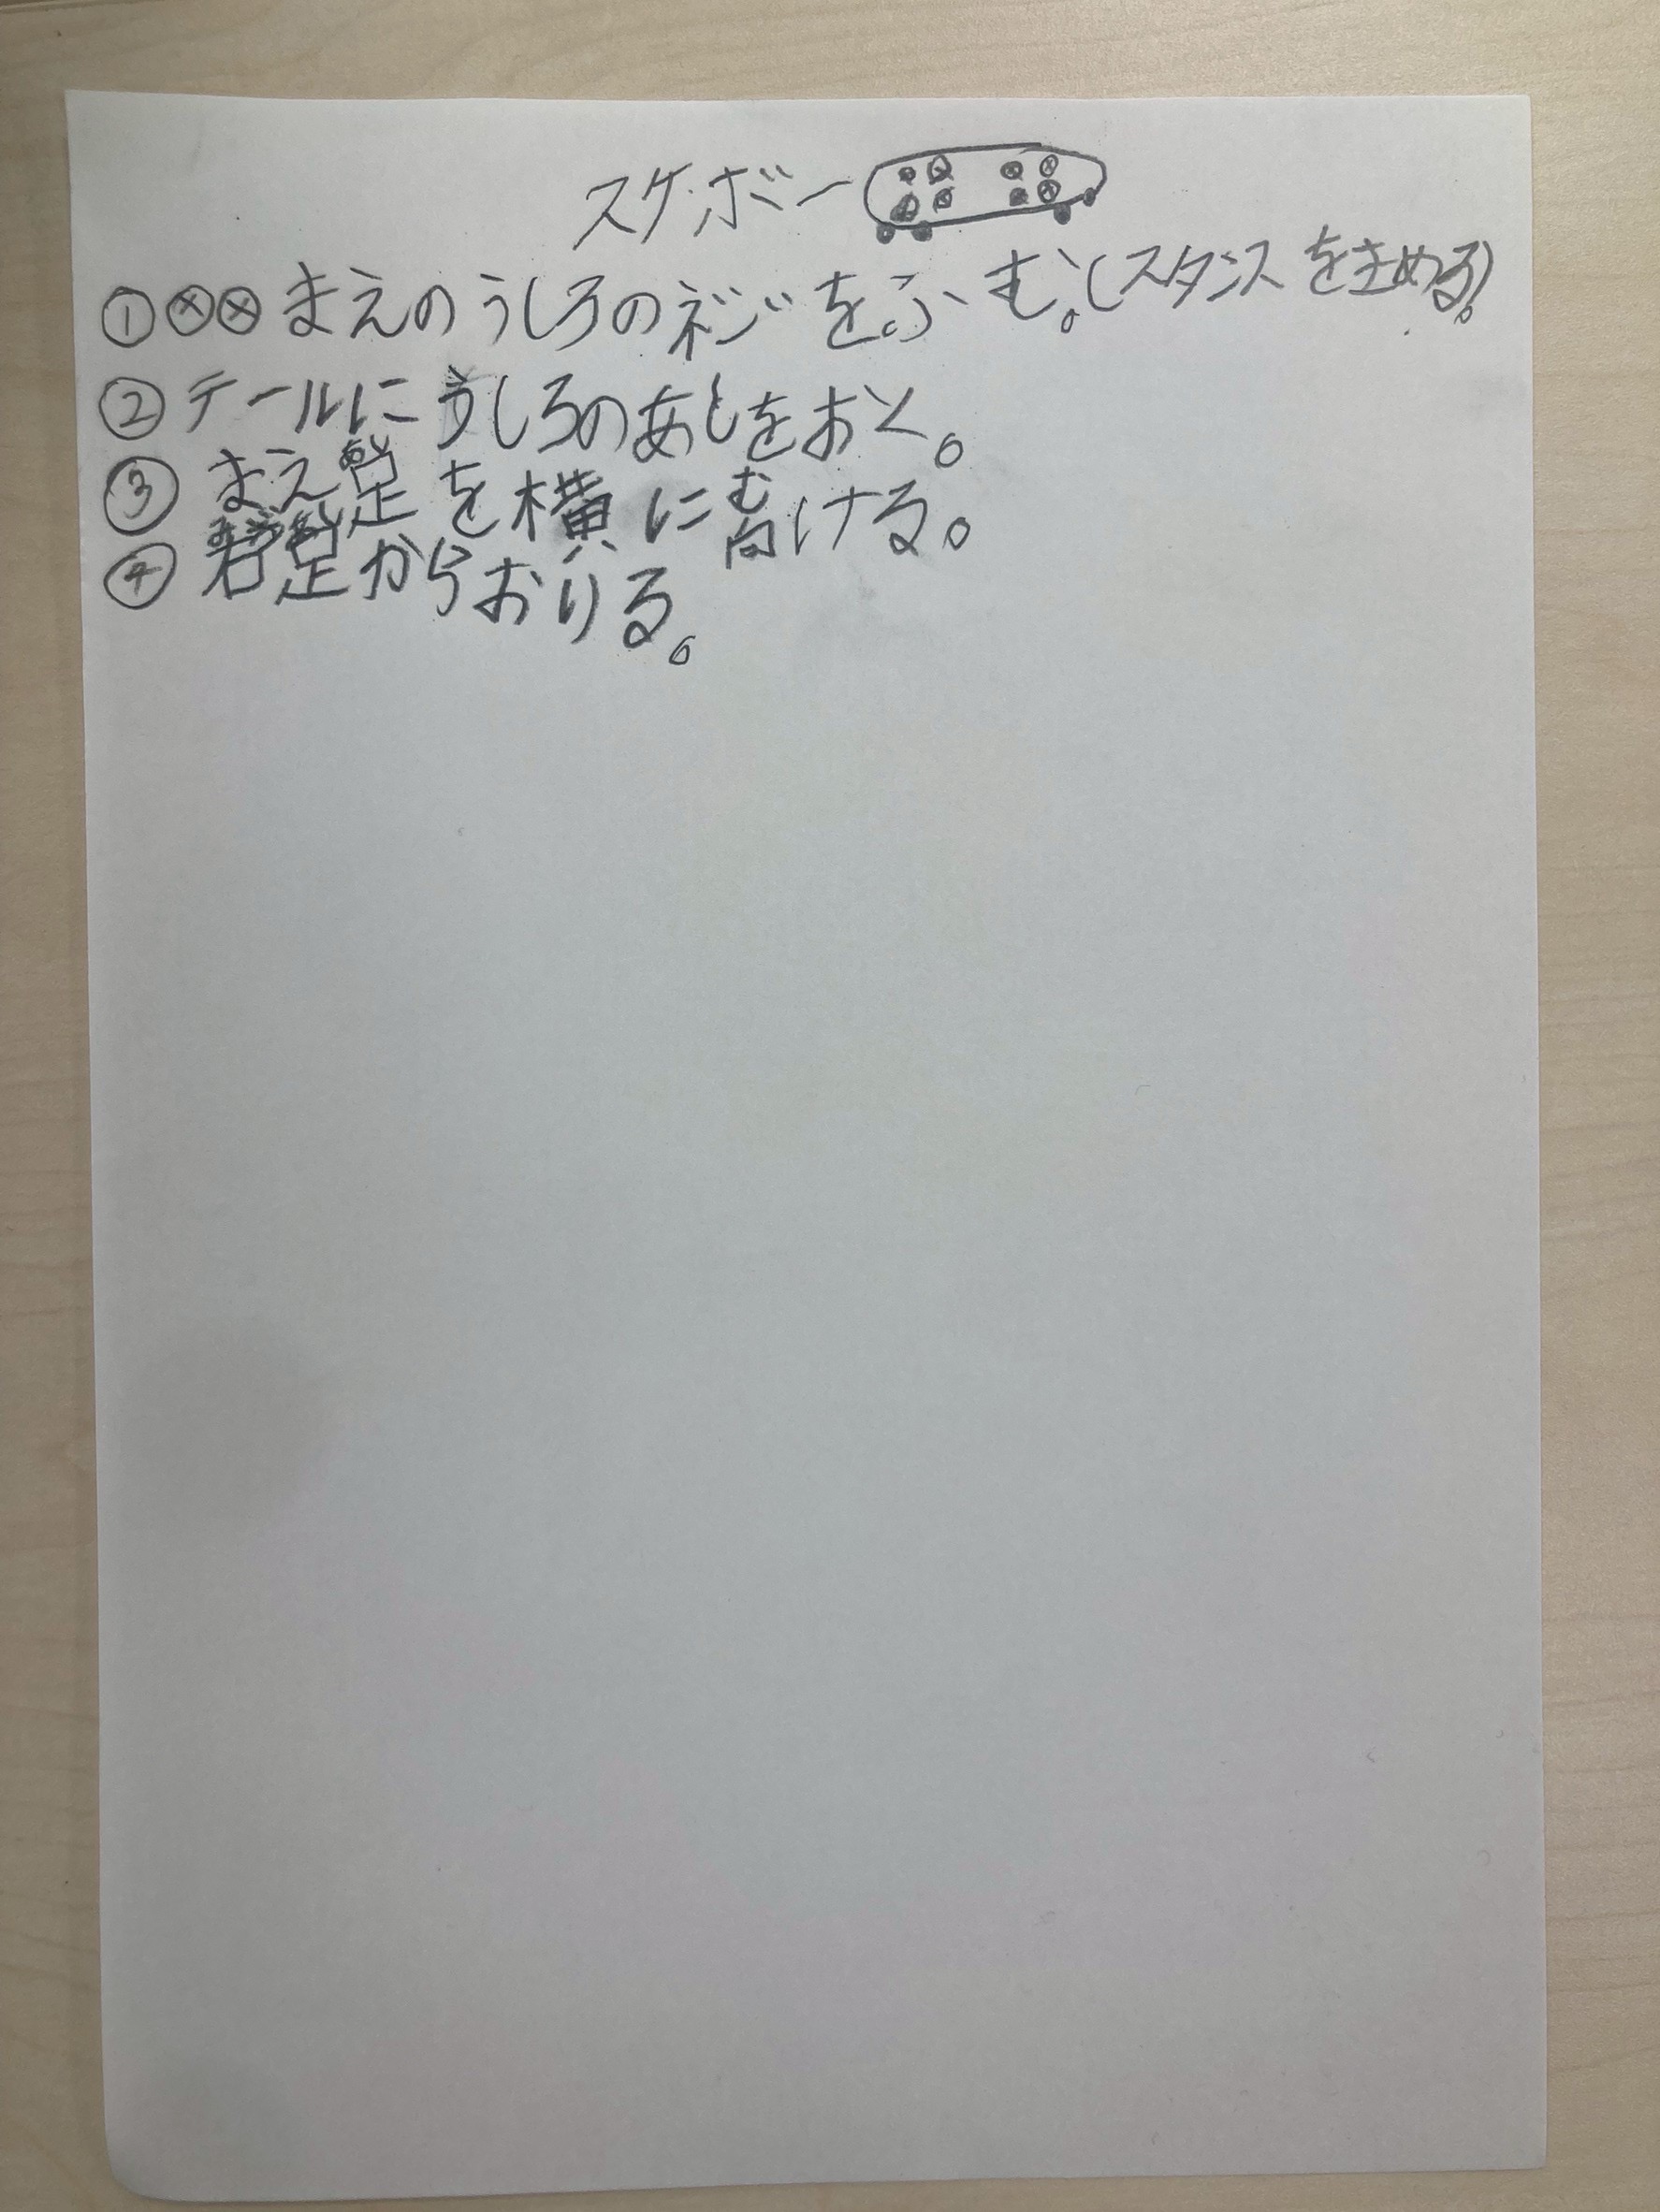 スケボー
① ⊗⊗ まえのうしろのネジをふむ。(スタンスをきめる。)
② テールにうしろのあしをおく。
③ まえ足を横に向ける。
④ 足からおりる。